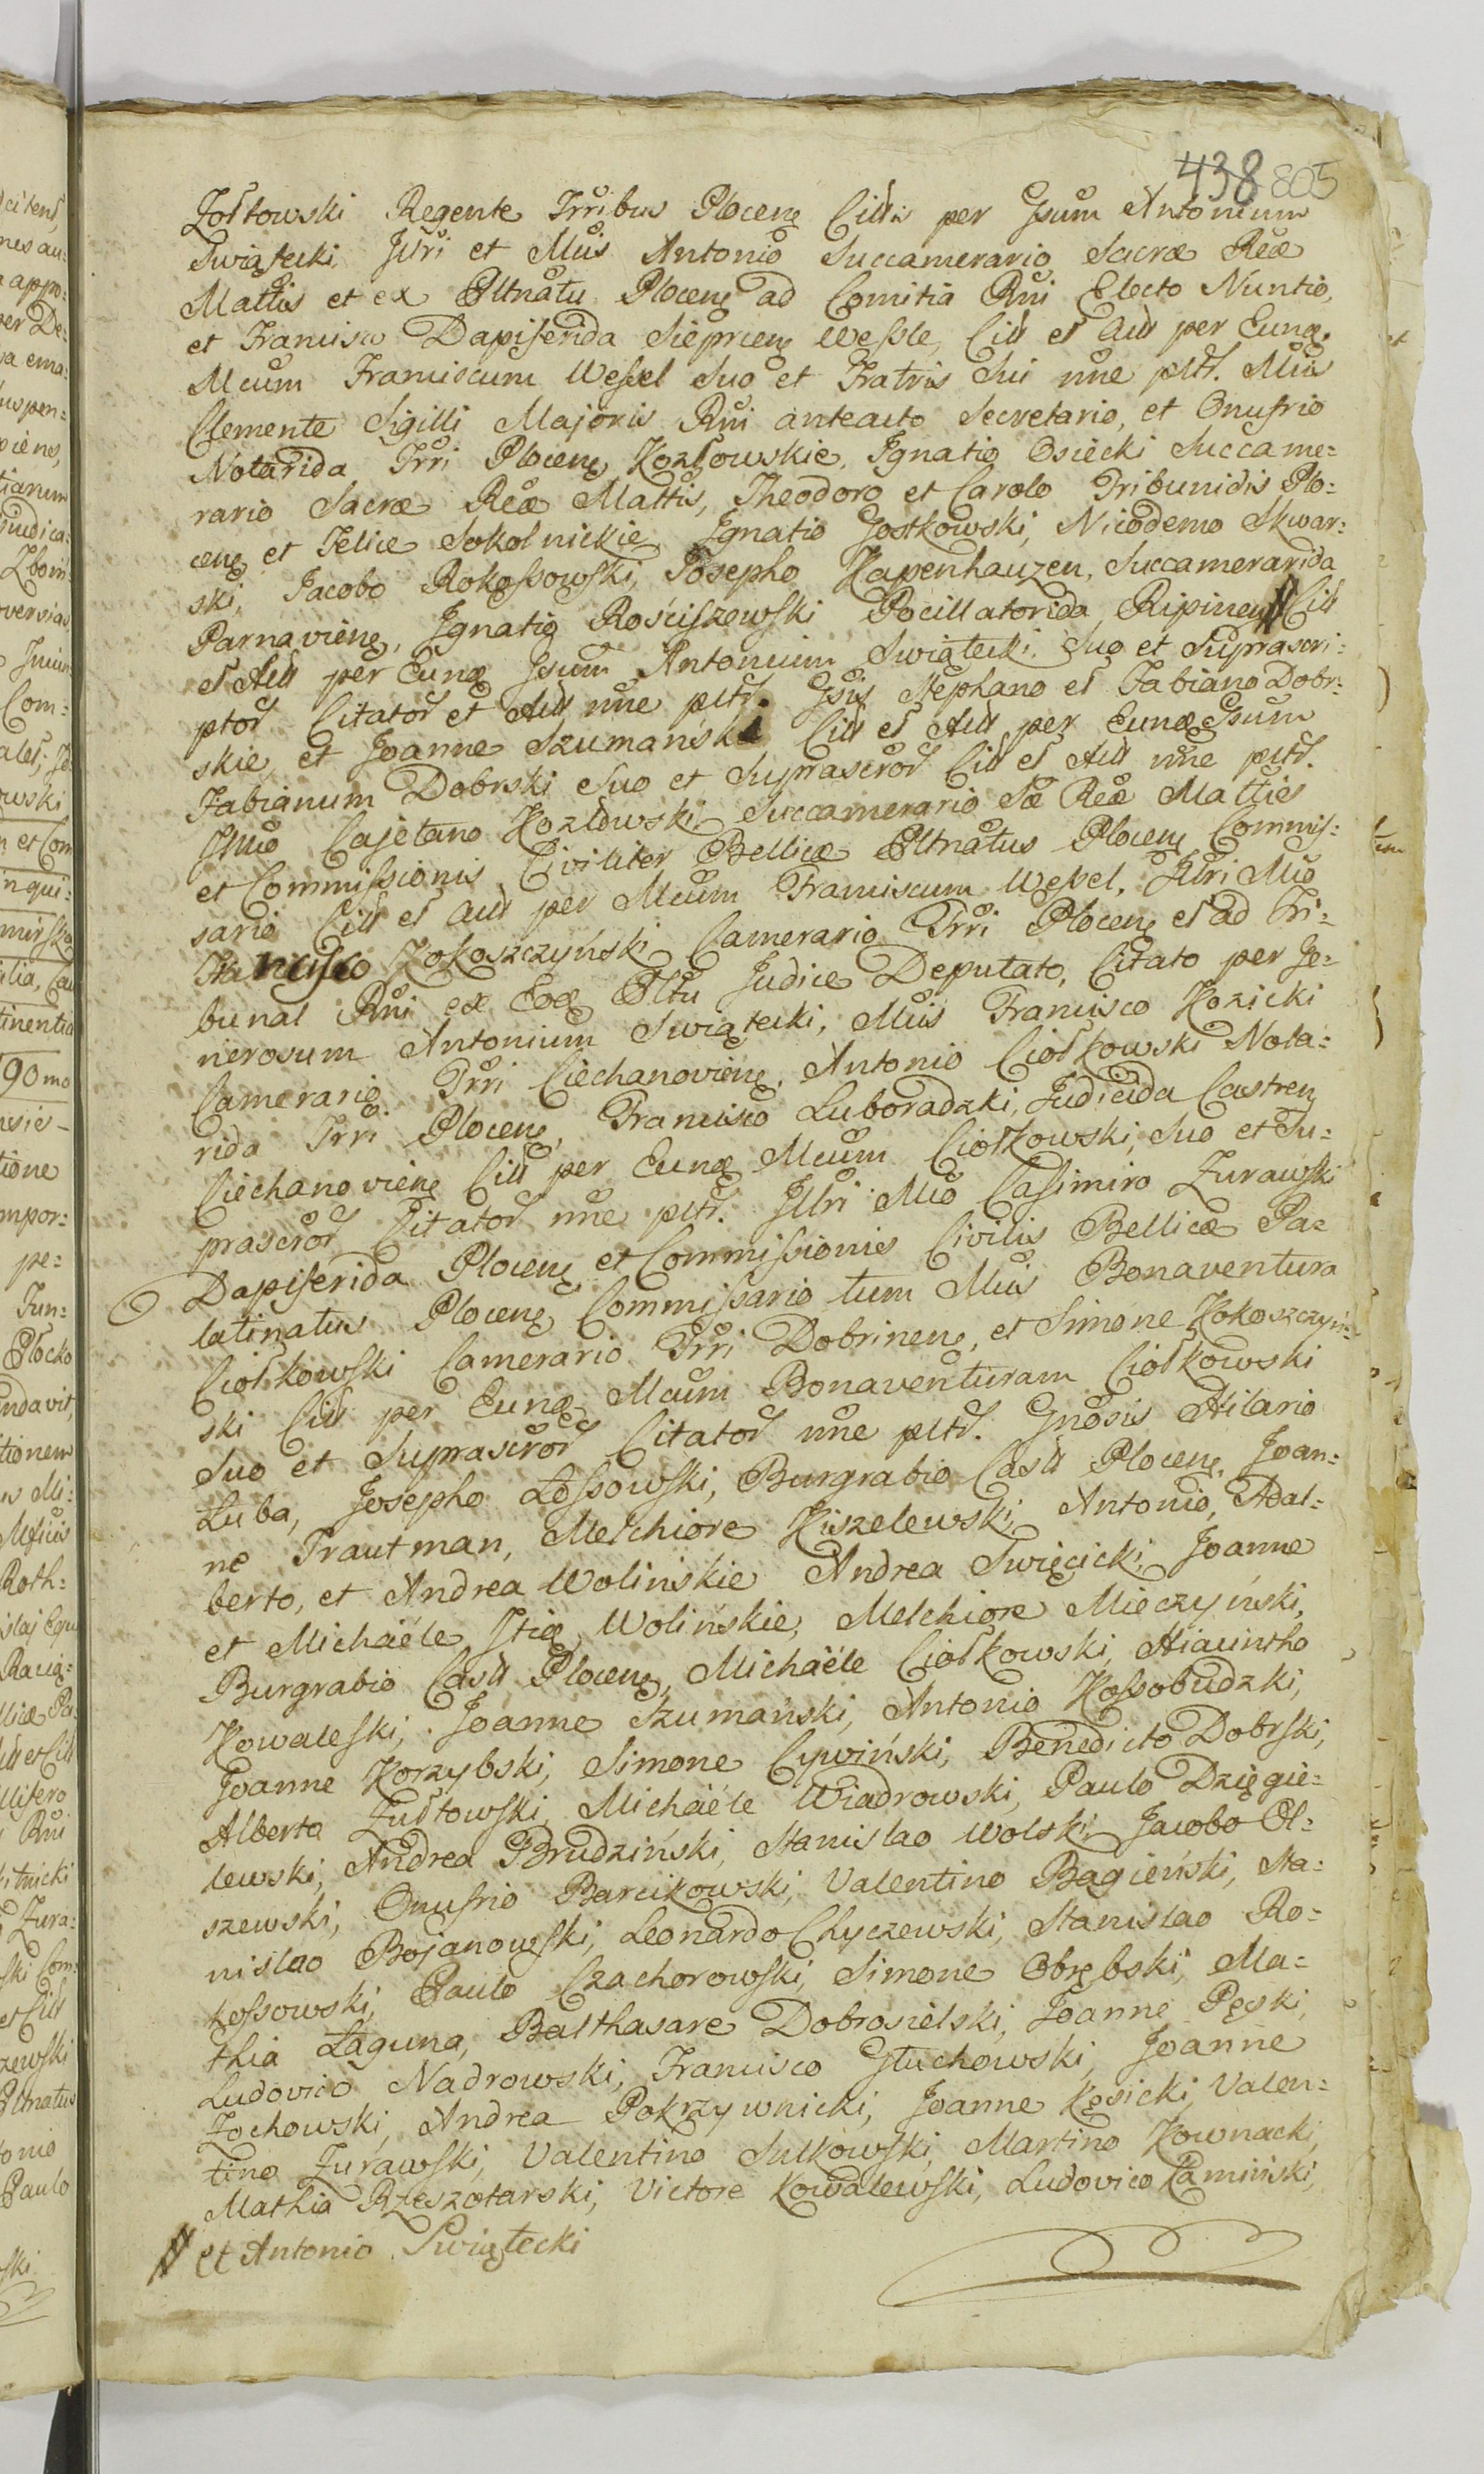 438 805
Żołtowski Regente Trribus Plocen Citts per Gsum Antonium
Swiątecki, Jllri et Mūis Antonio Succamerario Sacræ Reæ
Mattis et ex Pltnātu Plocen ad Comitia Rni Electo Nuntio,
et Francisco Dapiferida Sieprcen Weſsle, Citt et Att per Eunđ.
Mcum Franciscum Weſsel Suo et Fratris Sui nne pltt. Mūis
Clemente Sigilli Majoris Rni anteacto Secretario, et Onufrio
Notarida Trri Plocen Kozłowskie, Ignatio Osiecki Succame:
rario Sacræ Reæ Mattis, Theodoro et Carolo Tribunidis Plo:
cen et Felice Sokolnickie, Ignatio Gostkowski, Nicodemo Skwar:
ski, Jacobo Rokoſsowski, Josepho Kapenhauzen, Succamerarida
Parnavien, Ignatio Rosciszewski Pocillatorida Ripinen // Citt
et Att per Eunđ Gsum Antonium Swiątecki, Suo et Suprascri:
ptor Citator et Att nne pltt. Gsis Stephano et Fabiano Dobr:
skie, et Joanne Szumański Citt et Att per Eunđ Gsum
Fabianum Dobrski Suo et Suprascror Citt et Att nne pltt.
Jllmo Cajetano Kozłowski Succamerario Sæ Reæ Mattis
et Commiſsionis Civiliter Bellicæ Pltnātus Plocen Commiſ:
sario Citt et Att per Mcum Franciscum Weſsel, Jllri Mūo
Francisco Kokoszczyński Camerario Trri Plocen et ad Tri:
bunal Rni ex Eođ Pltu Judice Deputato, Citato per Ge:
nerosum Antonium Swiątecki, Mūis Francisco Kozicki
Camerario Trri Ciechanovien, Antonio Ciołkowski Nota:
rida Trri Plocen, Francisco Luboradzki, Judicida Castren
Ciechanovien Citt per Eunđ Mcum Ciołkowski, Suo et Su:
prascror Citator nne pltt. Jllri Mūo Casimiro Zurawski
Dapiferida Plocen et Commiſsionis Civilis Bellicæ Pa:
latinatus Plocen Commiſsario tum Mūis Bonaventura
Ciołkowski Camerario Trri Dobrinen, et Simone Kokoszczyń:
ski Citt per Eunđ Mcum Bonaventuram Ciołkowski
Suo et Suprascror Citator nne pltt. Gnosis Hilario
Łuba, Josepho Łoſsowski, Burgrabio Castr Plocen, Joan:
ne Trautman, Melchiore Kiszelewski, Antonio, Adal:
berto, et Andrea Wolińskie Andrea Swięcicki, Joanne
et Michaële Itiđ Wolińskie, Melchiore Mieczyiński,
Burgrabio Castr Plocen, Michaële Ciołkowski, Hiacintho
Kowaleski, Joanne Szumański, Antonio Koſsobudzki,
Joanne Korzybski, Simone Cywiński, Benedicto Dobrski,
Alberto Zułtowski, Michaële Wiadrowski, Paulo Dzięgie:
lewski, Andrea Brudziński, Stanislao Wolski, Jacobo Ol:
szewski, Onufrio Barcikowski, Valentino Bagieński, Sta:
nislao Bojanowski, Leonardo Chyczewski, Stanislao Ro:
koſsowski, Paulo Czachorowski, Simone Obrębski, Ma:
thia Łaguna, Balthasare Dobrosielski, Joanne Pęski,
Ludovico Nadrowski, Francisco Głuchowski, Joanne
Żochowski, Andrea Pokrzywnicki, Joanne Kęsicki, Valen:
tino Żurawski, Valentino Sulkowski, Martino Kownacki,
Mathia Rzeszotarski, Victore Kowalewski, Ludovico Kamiński,
// et Antonio Swiątecki